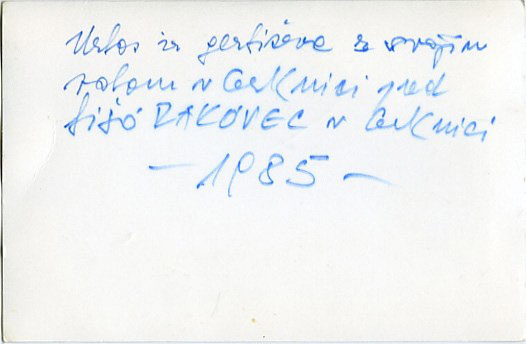 Urbas iz gerbičova z svojim
volom v Cerknici pred
hišo RAKOVEC v Cerknici
- 1985 -